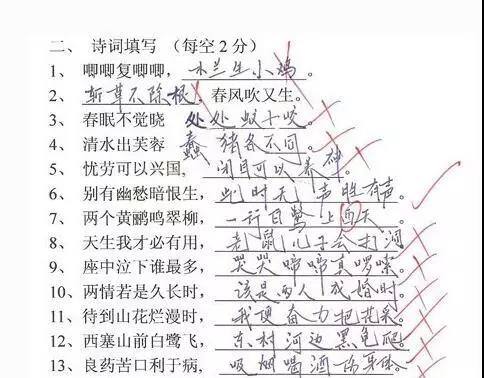 二、 诗词填写 （每空2分）
1、 唧唧复唧唧，木兰生小鸡。
2、 斩草不除根，春风吹又生。
3、 春眠不觉晓 处处蚊子咬。
4、 清水出芙蓉 蠢猪各不同。
5、 忧劳可以兴国，闭目可以养神
6、 别有幽愁暗恨生，此时无声胜有声。
7、 两个黄鹂鸣翠柳，一行白鹭上西天。
8、 天生我才必有用，老鼠儿子会打洞
9、 座中泣下谁最多，哭哭啼啼真啰嗦。
10、两情若是久长时，该是两人成婚时。
11、待到山花烂漫时，我便奋力把花采。
12、西塞山前白鹭飞，东村河边黑龟爬。
13、良药苦口利于病，吸烟喝酒伤身体。